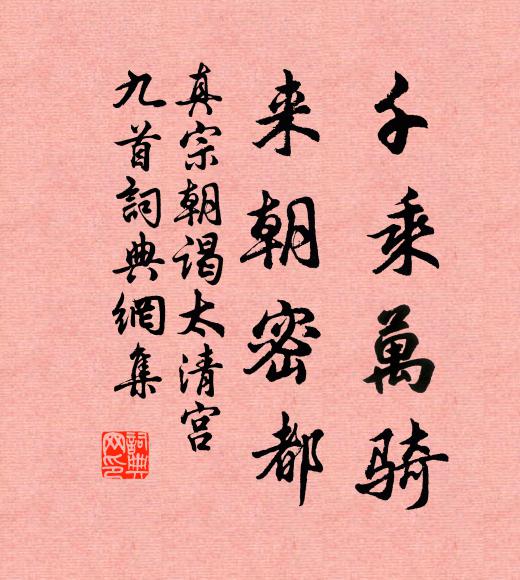 千乘萬骑
来朝密都
真宗朝谒太清宫
九首詞典網集
詞典网印